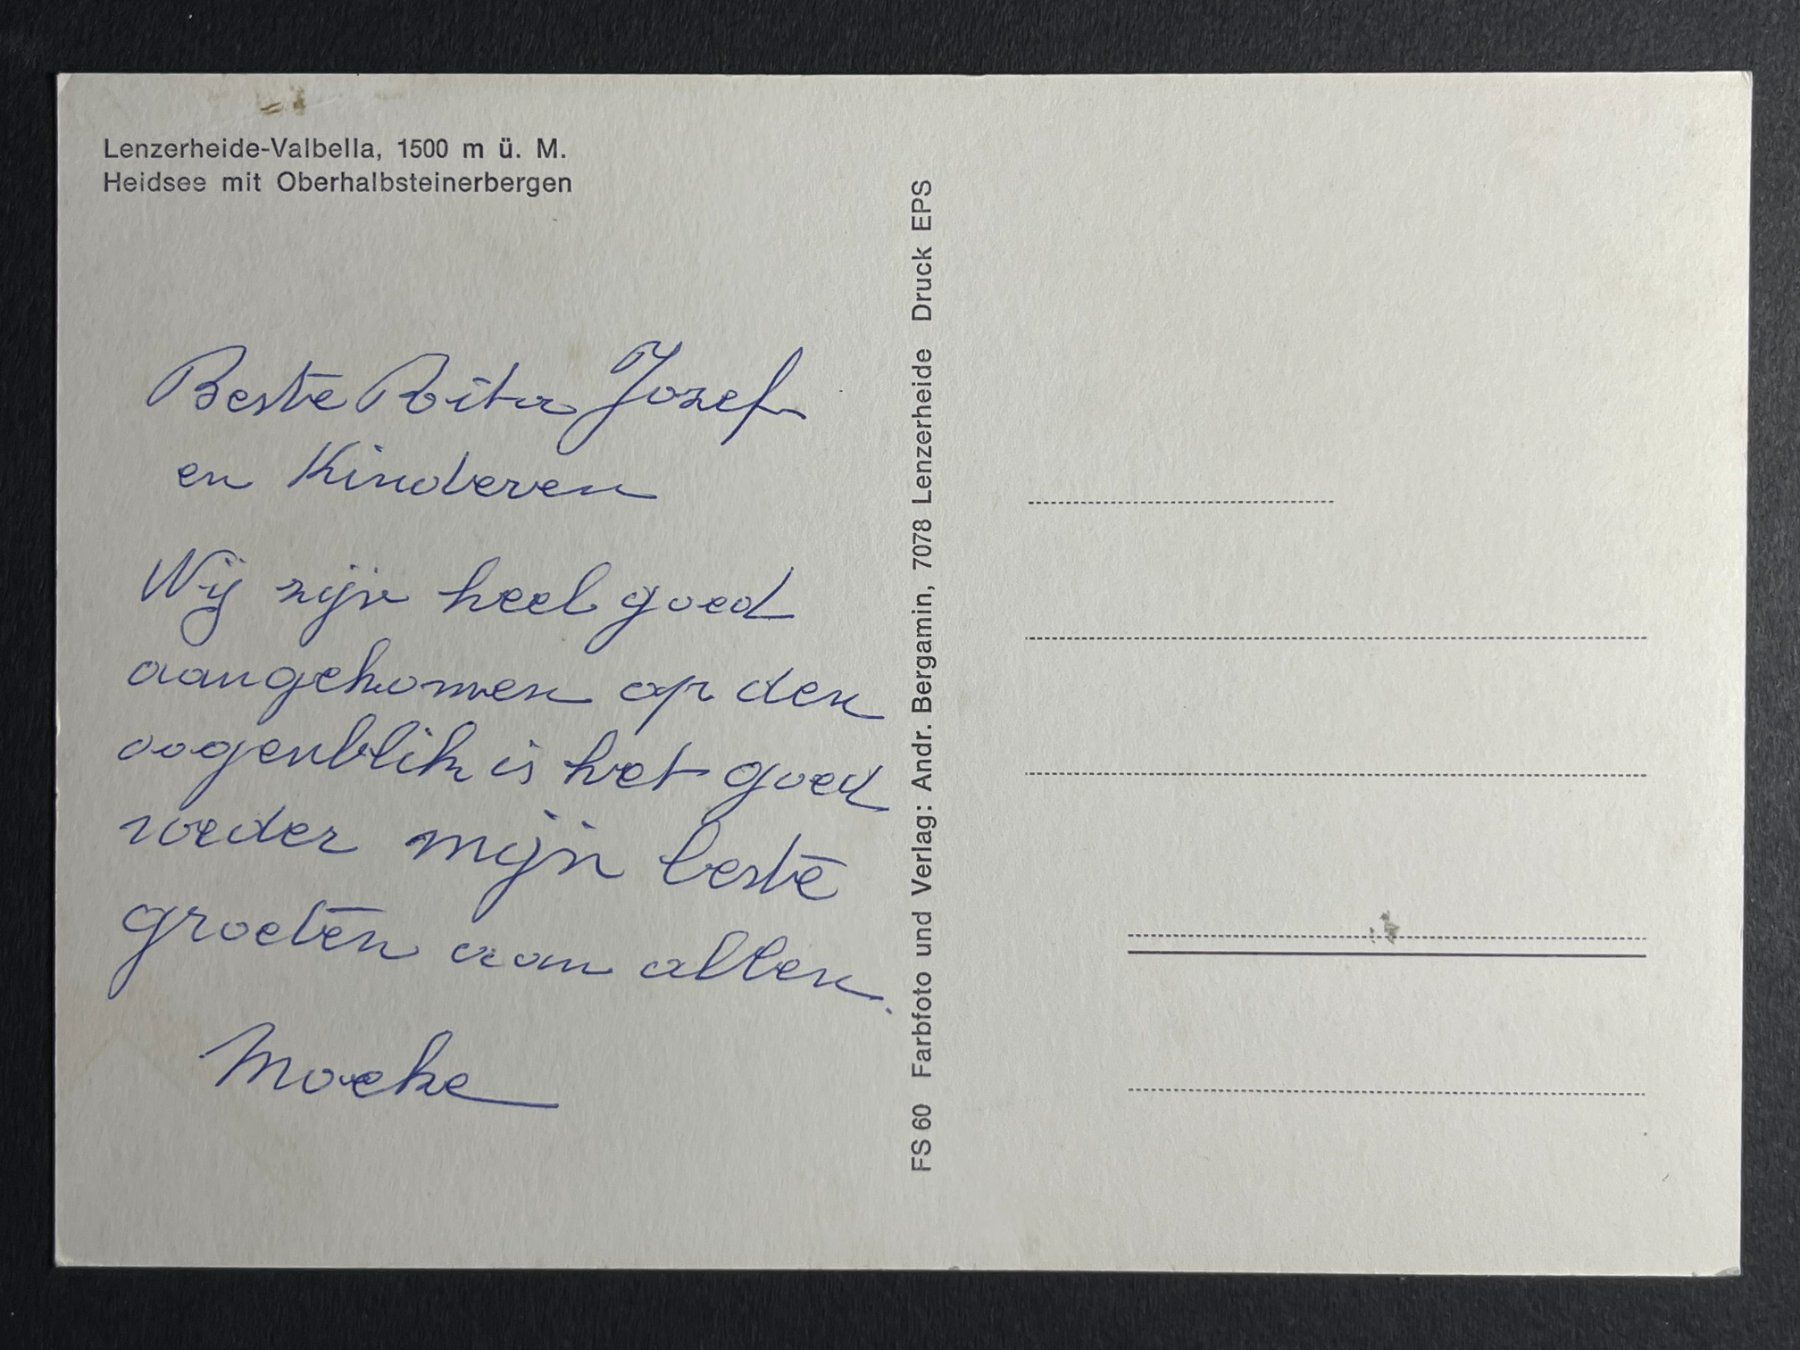 Lenzerheide-Valbella, 1500 m ü. M.
Heidsee mit Oberhalbsteinerbergen
Beste Rita Jozef
en Kinderen
Wij zijn heel goed
aangekomen op den
oogenblik is het goed
weder mijn beste
groeten aan allen.
Moeke
FS 60 Farbfoto und Verlag: Andr. Bergamin, 7078 Lenzerheide Druck EPS